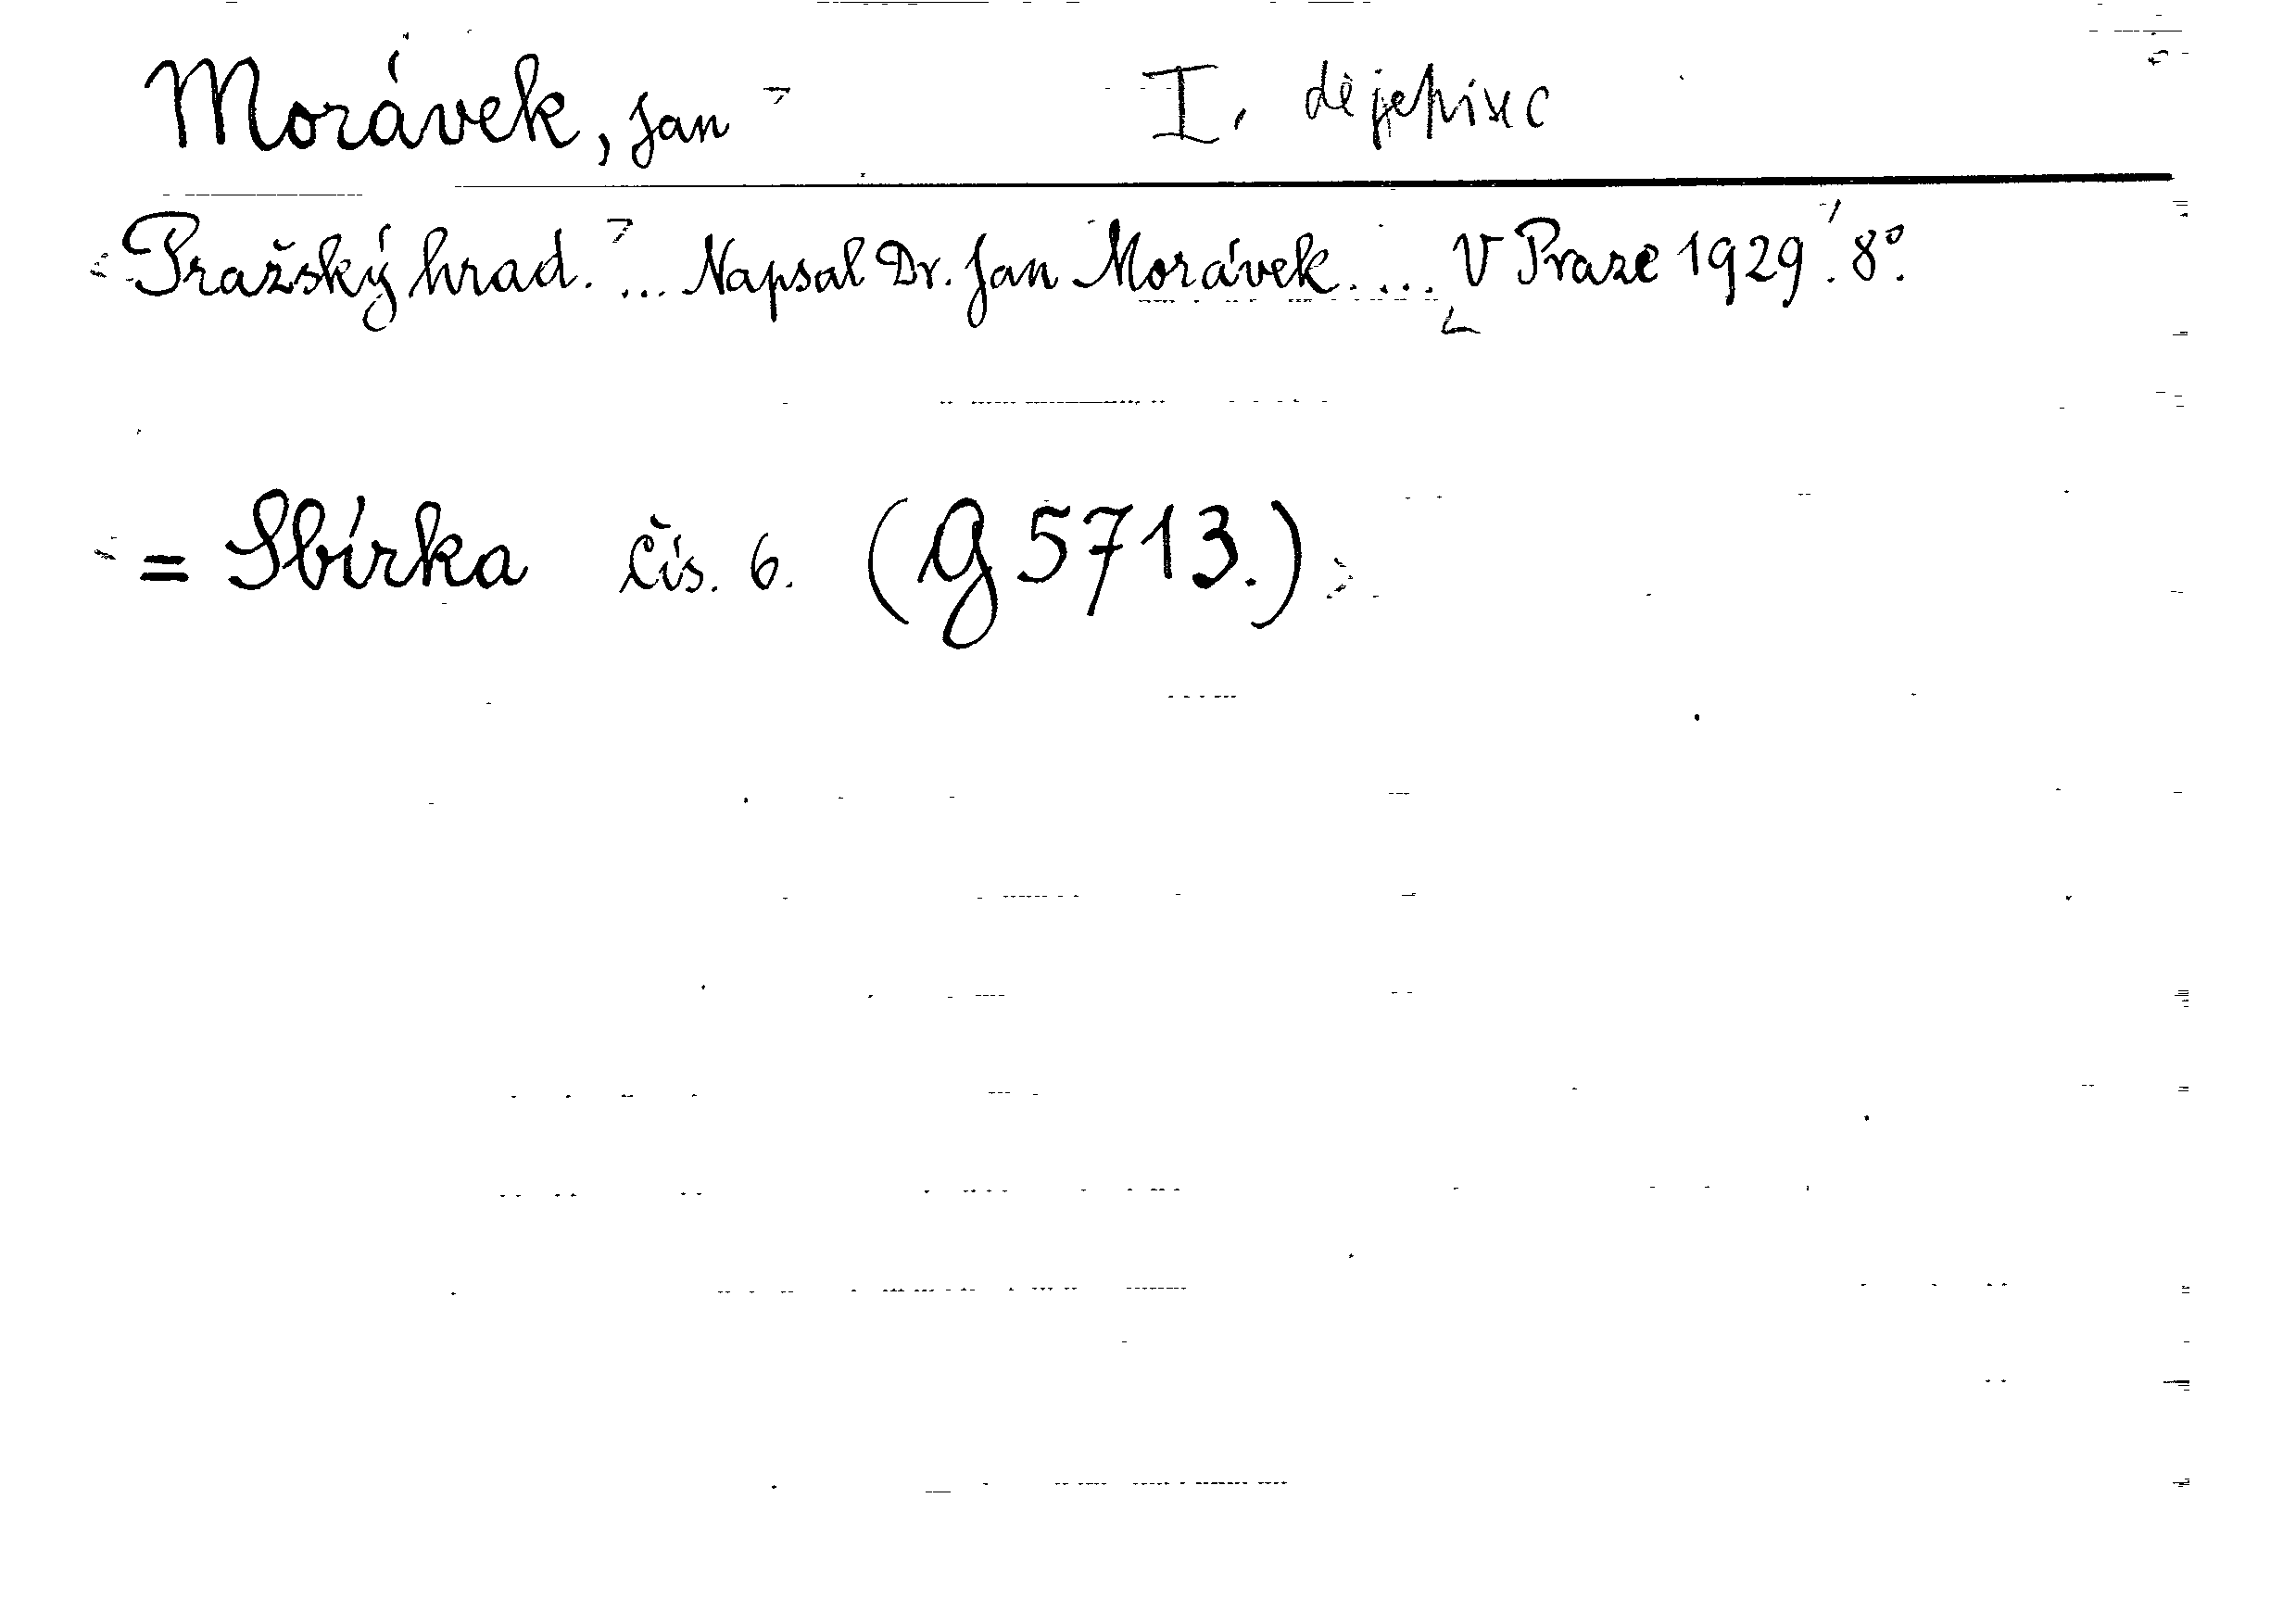 Morávek, Jan I. dějepisec
Pražský hrad. ... Napsal Dr. Jan Morávek. ... V Praze 1929. 8°.
= Sbírka čís. 6. (G 5713.)